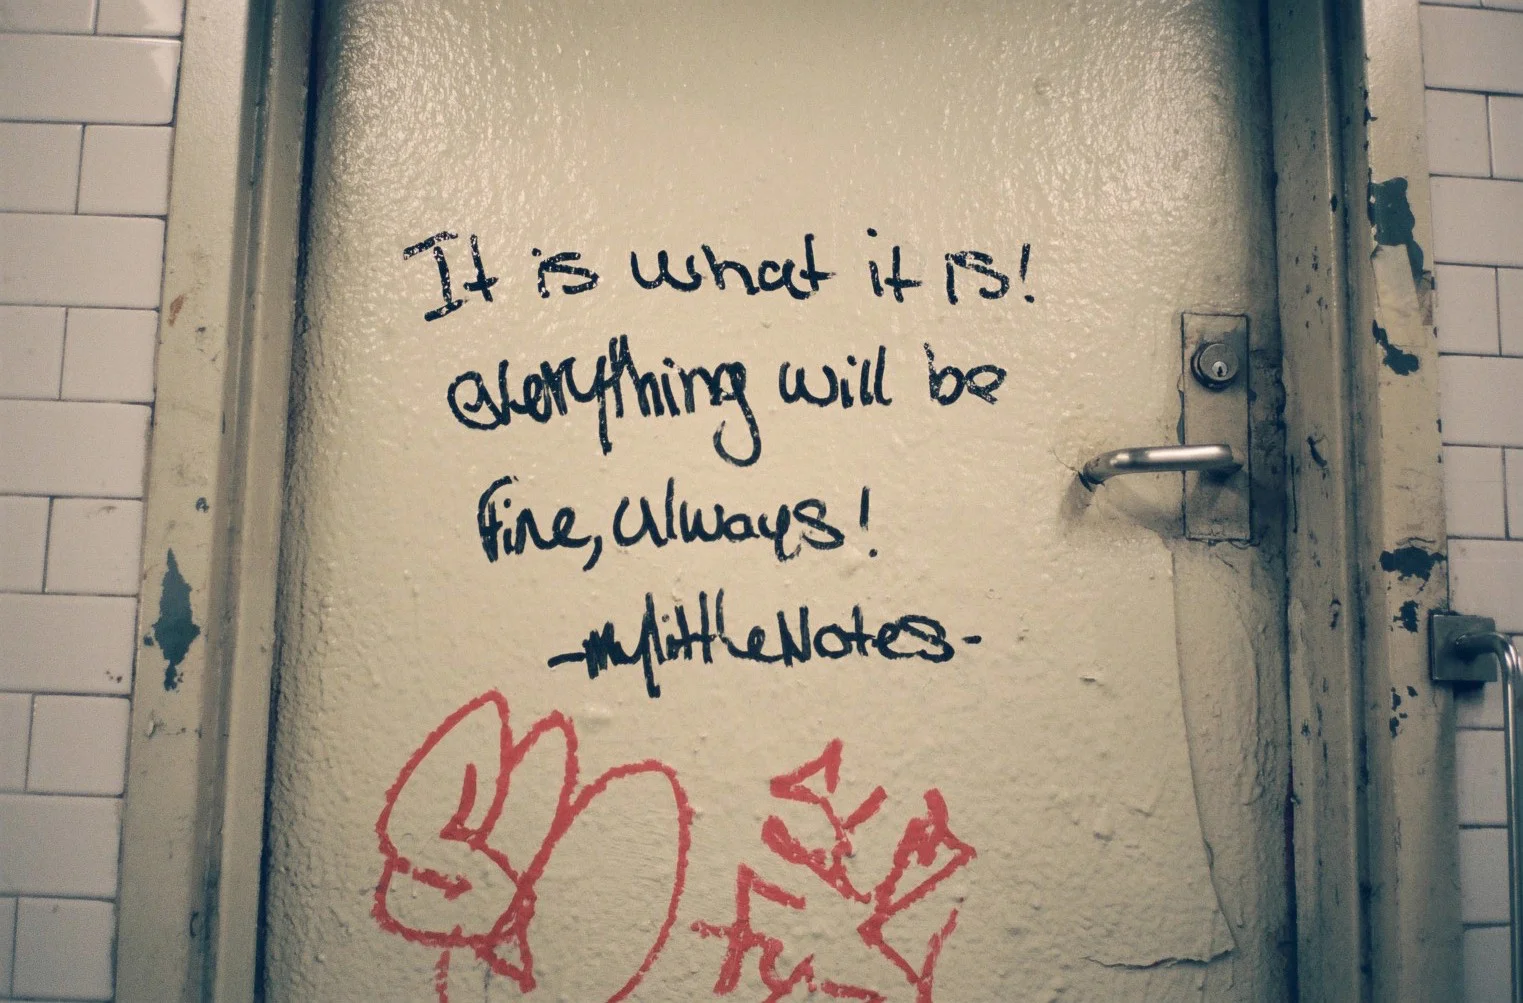 It is what it is!
everything will be
Fine, always!
-mylittleNotes-